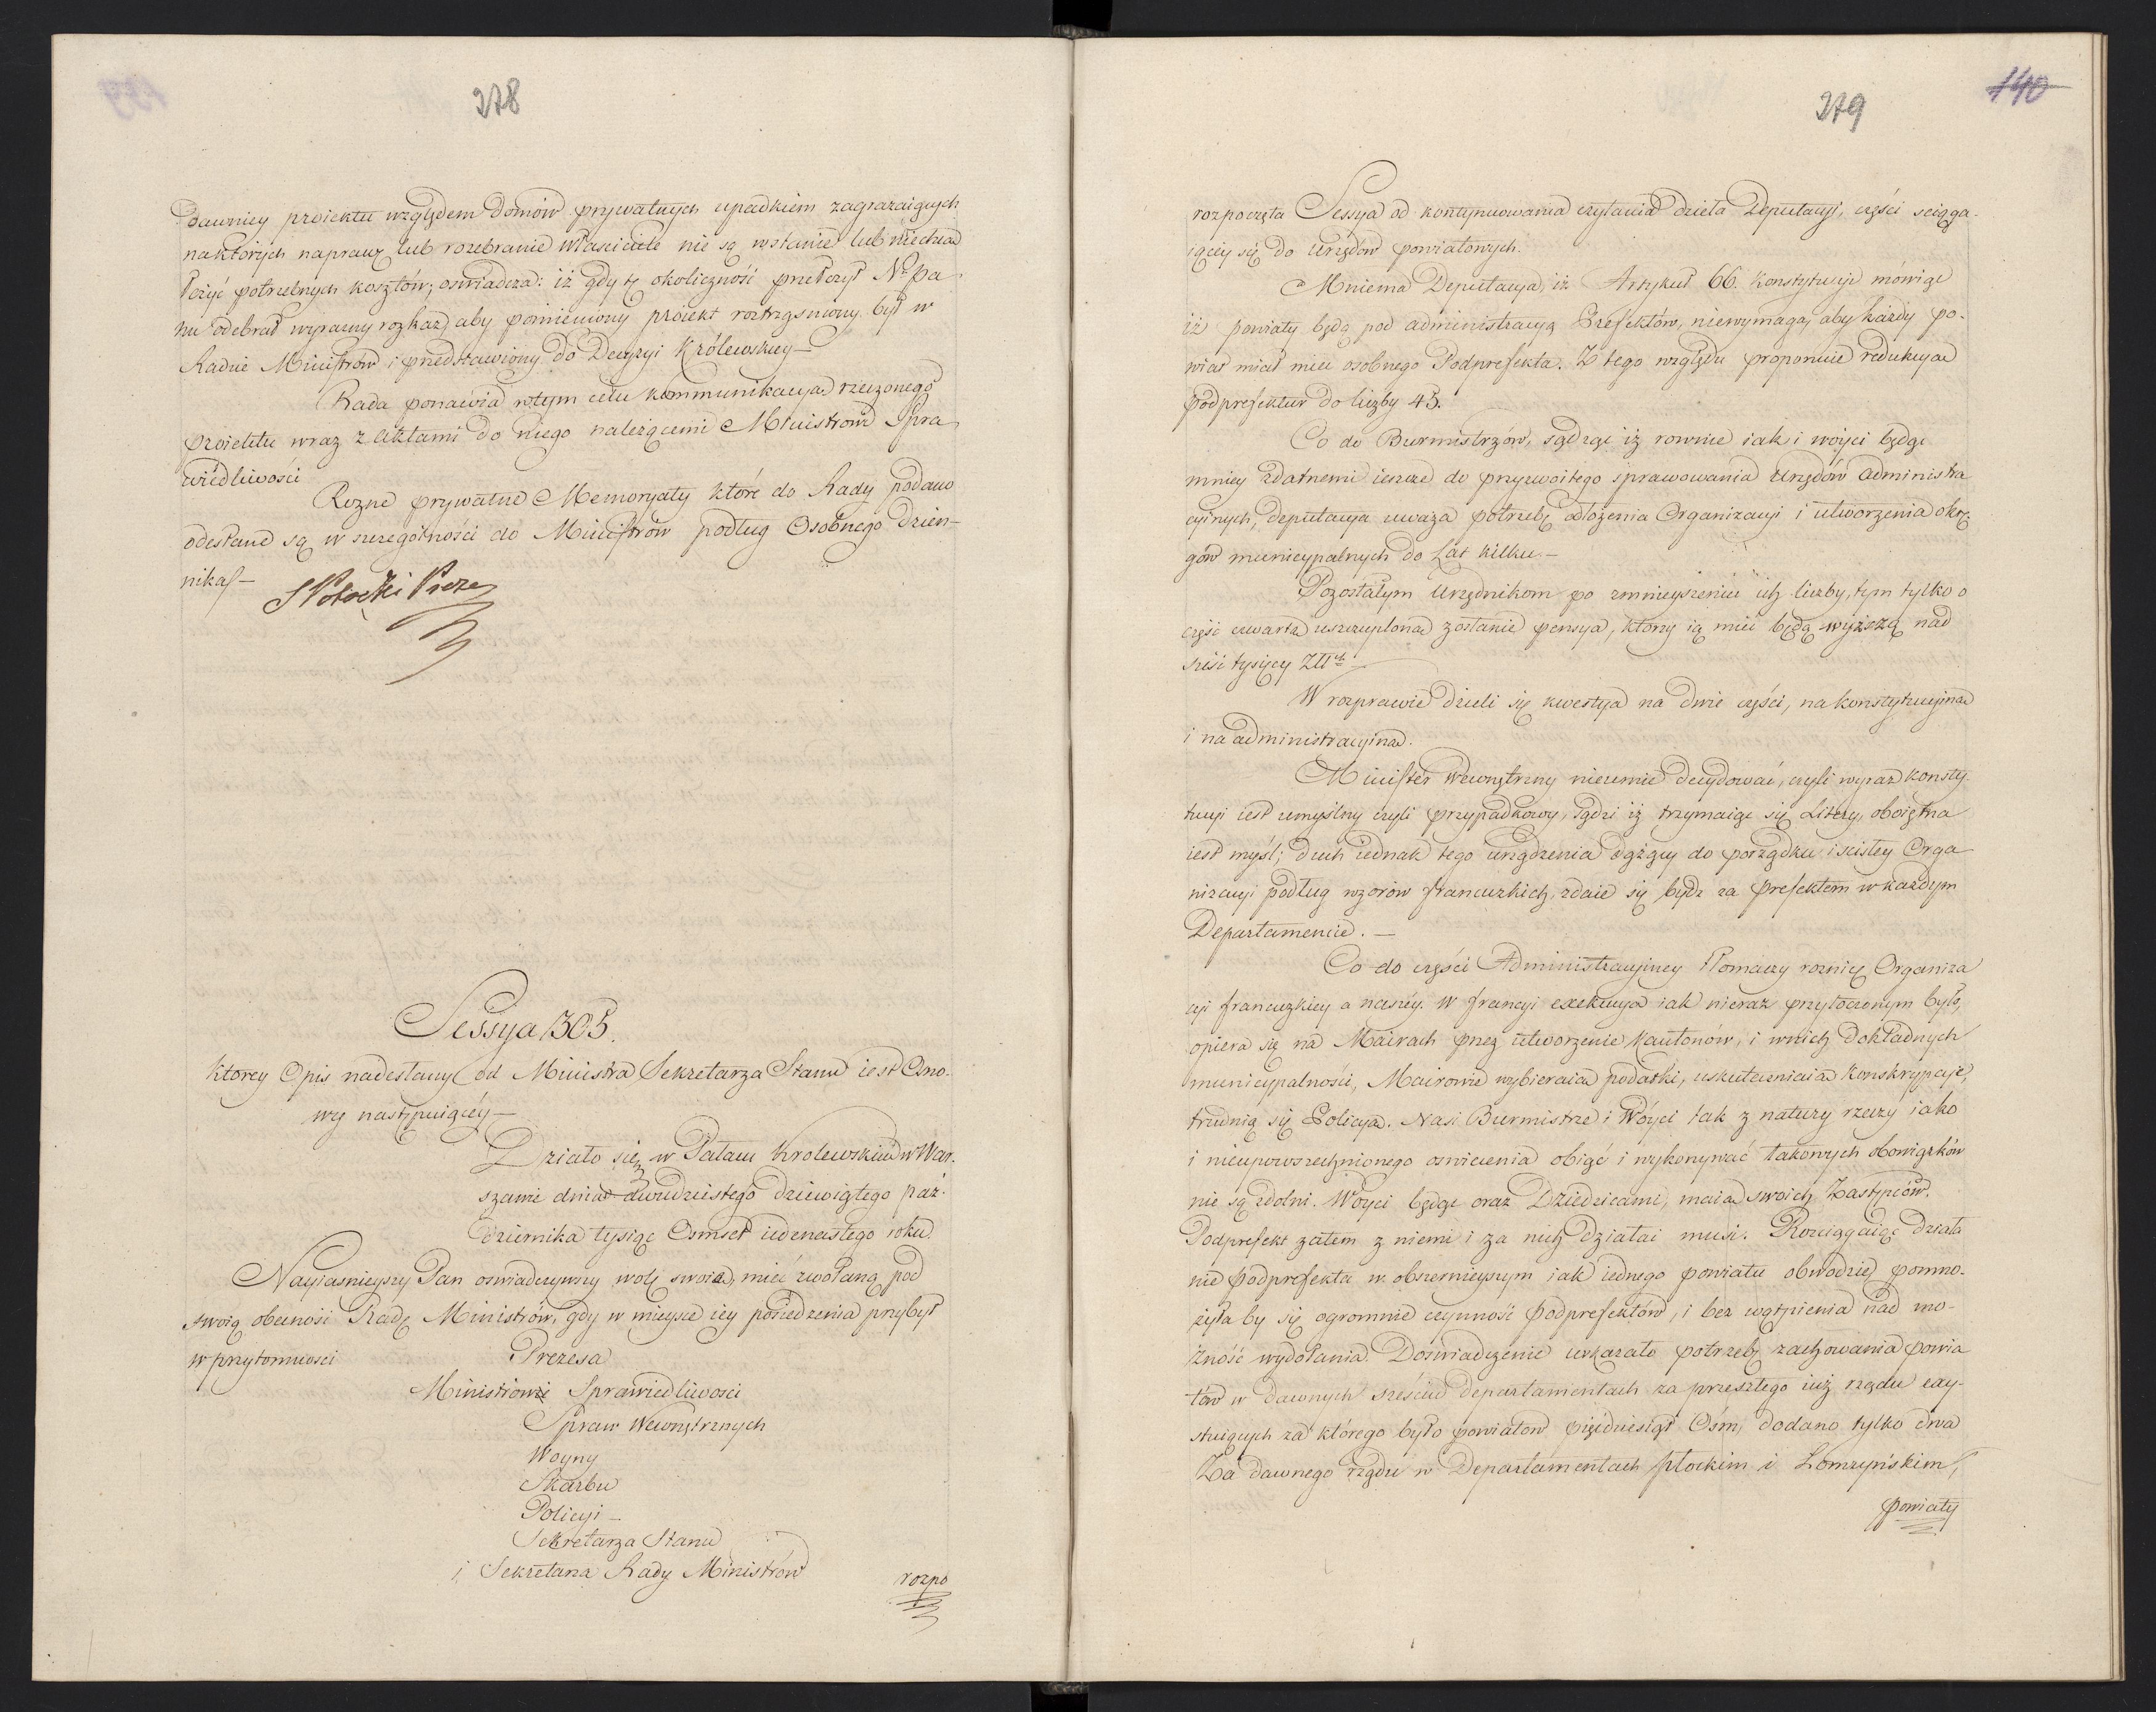 278
dawniey proiektu względem domów prywatnych upadkiem zagrażaiących
naktórych naprawę lub rozebranie właściciele nie są wstanie lub niechcą
łożyć potrzebnych kosztów; oświadcza: iż gdy tę okoliczność przełożył N. Pa
nu odebrał wyraźny rozkaz aby pomieniony proiekt roztrząśniony był w
Radzie Ministrów i przedstawiony do Decyzyi Królewskiey —
Rada ponawia wtym celu kommunikacyą rzeczonego
proiektu wraz z aktami do niego należącemi Ministrowi Spra
wiedliwości
Rozne prywatne Memoryały które do Rady podano
odesłane są w szczegolności do Ministrów podług Osobnego Dzien-
nika —
S Potocki Prezes
Sessya 305.
ktorey Opis nadesłany od Ministra Sekretarza Stanu iest Osno-
wy następuiącéy —
Działo się w Pałacu Krolewskim w War-
szawie dnia dwudziestego dziewiątego paź-
dziernika tysiąc Osmset iedenastego roku
Nayiaśnieyszy Pan oświadczywszy wolę swoią, mieć zwołaną pod
swoią obecność Radę Ministrów, gdy w mieysce iey posiedzenia przybył
w przytomności Prezesa
Ministrów Sprawiedliwości
Spraw Wewnętrznych
Woyny
Skarbu
Policyi —
Sekretarza Stanu
i Sekretarza Rady Ministrów
rozpo
140
279
rozpoczęta Sessya od kontynuowania czytania dzieła Deputacyi, części sciąga-
iącey się do Urzędów powiatowych.
Mniema Deputacya, iż Artykuł 66. Konstytucyi mówiąc
iż powiaty będą pod administracyą Prefektów, niewymaga, aby każdy po-
wiat miał mieć osobnego Podprefekta. Z tego względu proponuie redukcyą
podprefektur do liczby 45.
Co do Burmistrzów, sądząc iż rownie iak i woyci będąc
mniey zdatnemi ieszcze do przyzwoitego sprawowania Urzędów administra
cyinych, deputacya uważa potrzebę odłożenia Organizacyi i utworzenia okrę-
gów municypalnych do Lat kilku. —
Pozostałym Urzędnikom po zmnieyszeniu ich liczby, tym tylko o
część czwartą uszczuplona zostanie pensya, którzy ią mieć będą wyższą nad
sześć tysięcy Złłch —
W rozprawie dzieli się kwestya na dwie części, na konstytucyiną
i na administracyiną.
Minister Wewnętrzny nieumie decydować, czyli wyraz konsty
tucyi iest umyślny czyli przypadkowy, sądzi iż trzymaiąc się Litery, oboiętna
iest myśl; duch iednak tego urządzenia dążący do porządku i scisłey Orga
nizacyi podług wzorów francuzkich, zdaie się bydź za prefektem w każdym
Departamencie. —
Co do części Administracyiney tłomaczy roznicę Organiza
cyi francuzkiey a naszéy. W francyi exekucya iak nieraz przytoczonym było,
opiera się na Mairach przez utworzenie Kantonów, i wnich Dokładnych
municypalności, Mairowie wybieraią podatki, uskuteczniaią konskrypcyę,
trudnią się Policyą. Nasi Burmistrze i Wóyci tak z natury rzeczy iako
i nieupowszechnionego oświecenia obiąć i wykonywać takowych obowiązków
nie są zdolni. Wóyci będąc oraz Dziedzicami, maią swoich Zastępców.
Podprefekt zatem z niemi i za nich działać musi. Rozciągaiąc działa
nie podprefekta w obszernieyszym iak iednego powiatu obwodzie pomno-
żyła by się ogromnie czynność podprefektów, i bez wątpienia nad mo-
żność wydołania. Doświadczenie wskazało potrzebę zachowania powia
tów w dawnych sześciu departamentach za przeszłego iuż rządu exy-
stuiących za którego było powiatów pięćdziesiąt Ośm, dodano tylko dwa
Za dawnego rządu w Departamentach płockim i Łomżyńskim,
powiaty